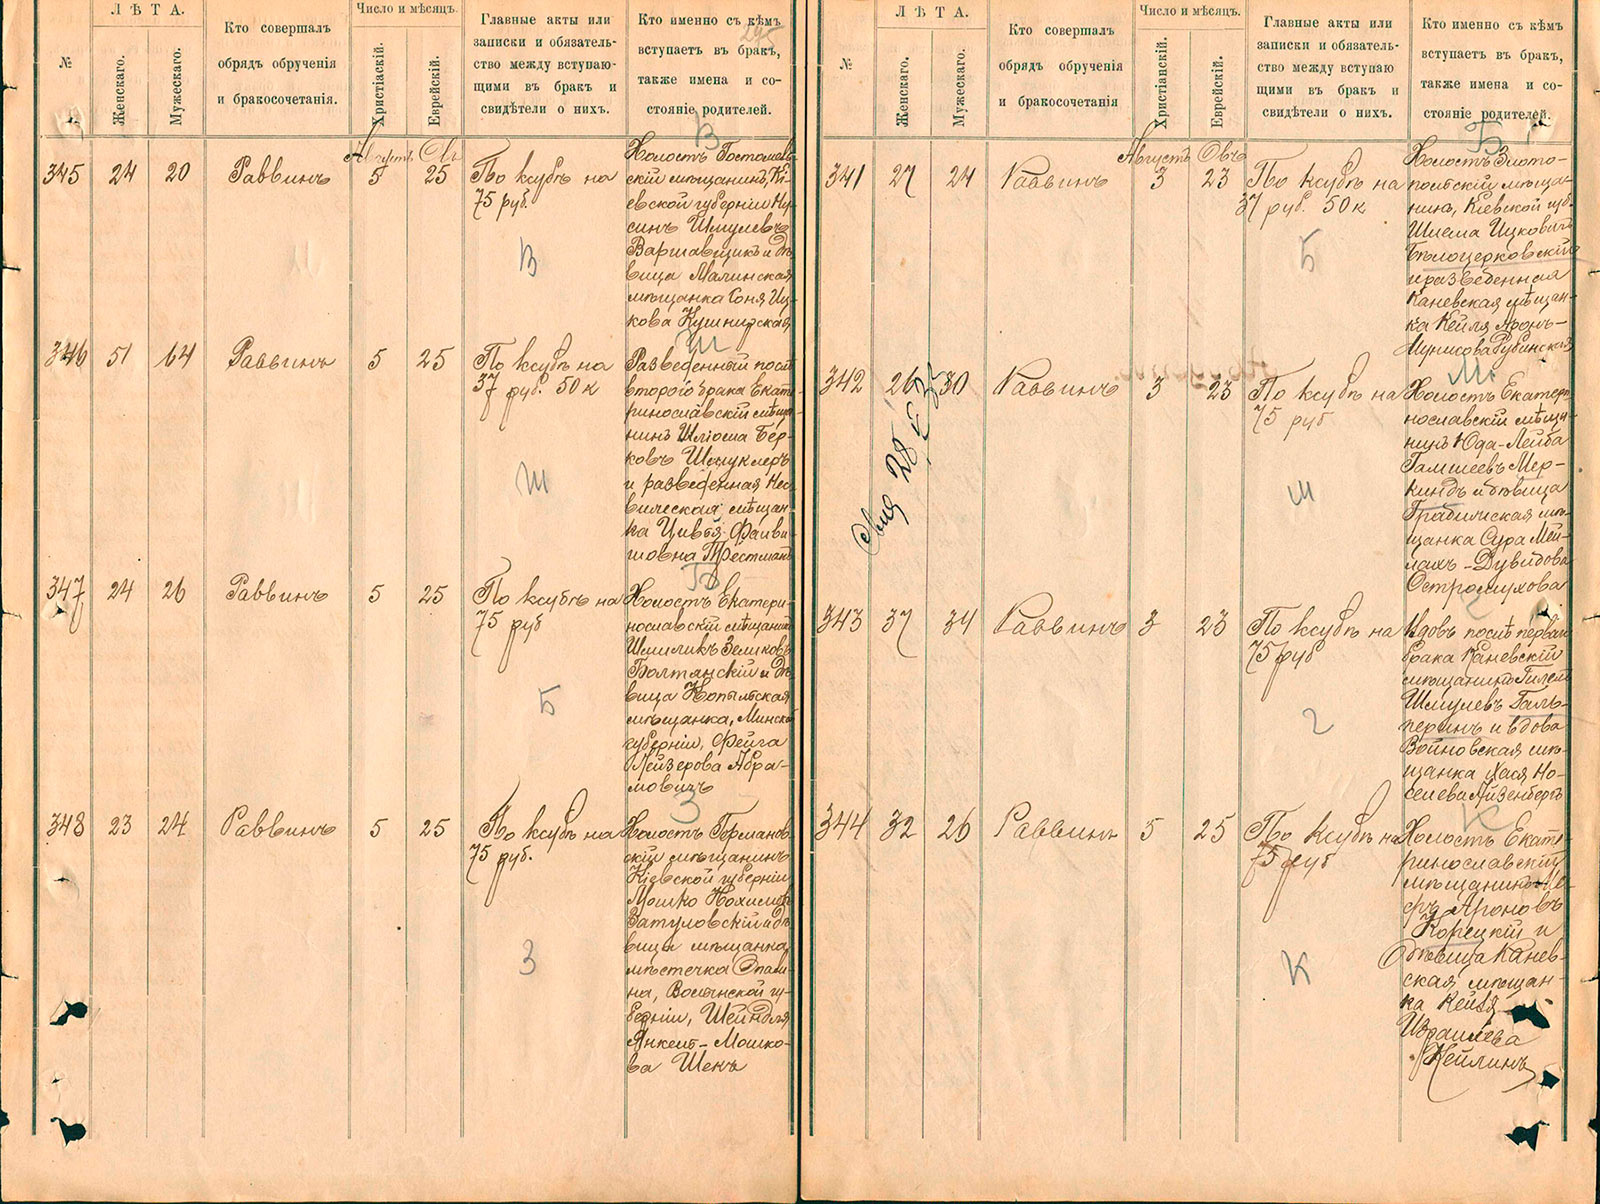 ЛѢТА.
Число и мѣсяцъ.
№
Женскаго.
Мужескаго.
Кто совершалъ
обрядъ обрученія
и бракосочетанія.
Христіаскій.
Еврейскій.
Главные акты или
записки и обязатель-
ство между вступаю-
щими въ бракъ и
свидѣтели о нихъ.
Кто именно съ кѣмъ
вступаетъ въ бракъ,
также имена и со-
стояніе родителей.
Августъ Овъ
В
345 24 20 Раввинъ 5 25 По ксубѣ на
75 руб.
В
Холостъ Гостомель-
скій мѣщанинъ, Кі-
евской губерніи Ну-
синъ Шмулевъ
Варшавщикъ и дѣ-
вица Малинская
мѣщанка Соня Иц-
кова Кушнирская
Ш
346 51 64 Раввинъ 5 25 По ксубѣ на
37 руб. 50 к
Ш
Разведенный послѣ
второго брака Екате-
ринославскій мѣща-
нинъ Шліома Бер-
ковъ Шмуклеръ
и разведенная Нес-
вическая мѣщан-
ка Цивья Файви-
шовна Трестманъ
Б
347 24 26 Раввинъ 5 25 По ксубѣ на
75 руб
Б
Холостъ Екатери-
нославскій мѣщанинъ
Шмиликъ Зеликовъ
Болтянскій и дѣ-
вица Копыльская
мѣщанка, Минской
губерніи, Фейга
Лейзерова Абра-
мовичъ
З
348 23 24 Раввинъ 5 25 По ксубѣ на
75 руб.
З
Холостъ Германов-
скій мѣщанинъ
Кіевской губерніи
Мошко Нохимовъ
Затуловскій и дѣ-
вица мѣщанка
мѣстечка
на, Волынской гу-
берніи, Шейндля
Янкель-Мошко-
ва Шекъ
ЛѢТА.
Число и мѣсяцъ.
№
Женскаго.
Мужескаго.
Кто совершалъ
обрядъ обрученія
и бракосочетанія
Христіанскій.
Еврейскій.
Главные акты или
записки и обязатель-
ство между вступаю
щими въ бракъ и
свидѣтели о нихъ.
Кто именно съ кѣмъ
вступаетъ въ бракъ,
также имена и со-
стояніе родителей.
Августъ Овъ
Б
341 27 24 Раввинъ 3 23 По ксубѣ на
37 руб. 50 к
Б
Холостъ Злато-
польскій мѣща-
нинъ, Кіевской губ.
Шлема Ицковичъ
Бѣлоцерковскій
и разведенная
Каневская мѣщан-
ка Кейля Аронъ-
Мунисова Рубинская
Ш
342 26 30 Раввинъ 3 23 По ксубѣ на
75 руб
Ш
Холостъ Екатери-
нославскій мѣща-
нинъ Юда-Лейба
Гамшеевъ Мер-
киндъ и дѣвица
Градижская мѣ-
щанка Сура Мей-
лахъ-Дувидова
Остромухова
343 37 34 Раввинъ 3 23 По ксубѣ на
75 руб
Г
Вдовъ послѣ перваго
брака Каневскій
мѣщанинъ Гилель
Шмулевъ Галь-
перинъ и вдова
Войновская мѣ-
щанка Хася Но-
селева Айзенбергъ
К
344 32 26 Раввинъ 5 25 По ксубѣ на
75 руб
К
Холостъ Екате-
ринославскій
мѣщанинъ Ме-
еръ Ароновъ
Корецкій и
дѣвица Канев-
ская мѣщан-
ка Кейля
Израилева
Кейлинъ